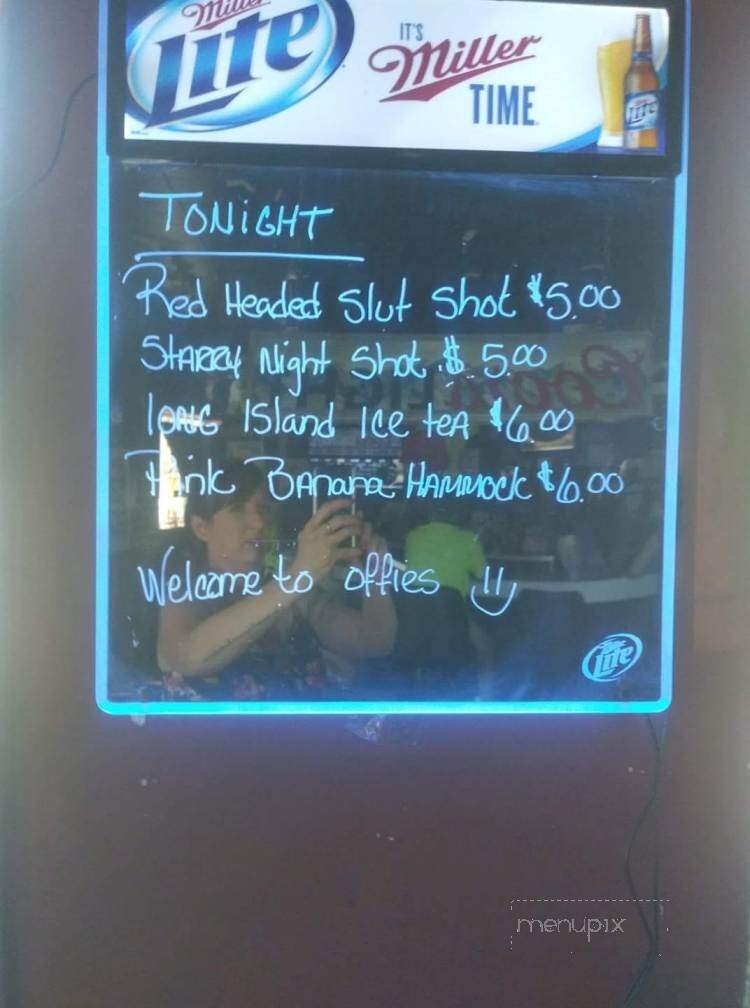 Miller
Lite
IT'S
Miller
TIME
Lite
TONIGHT
Red Headed Slut Shot $5.00
STARRY Night Shot $ 5.00
LONG ISland Ice teA $6.00
Pink BANana HAMMOCK $6.00
Welcome to offies
Lite
menupix